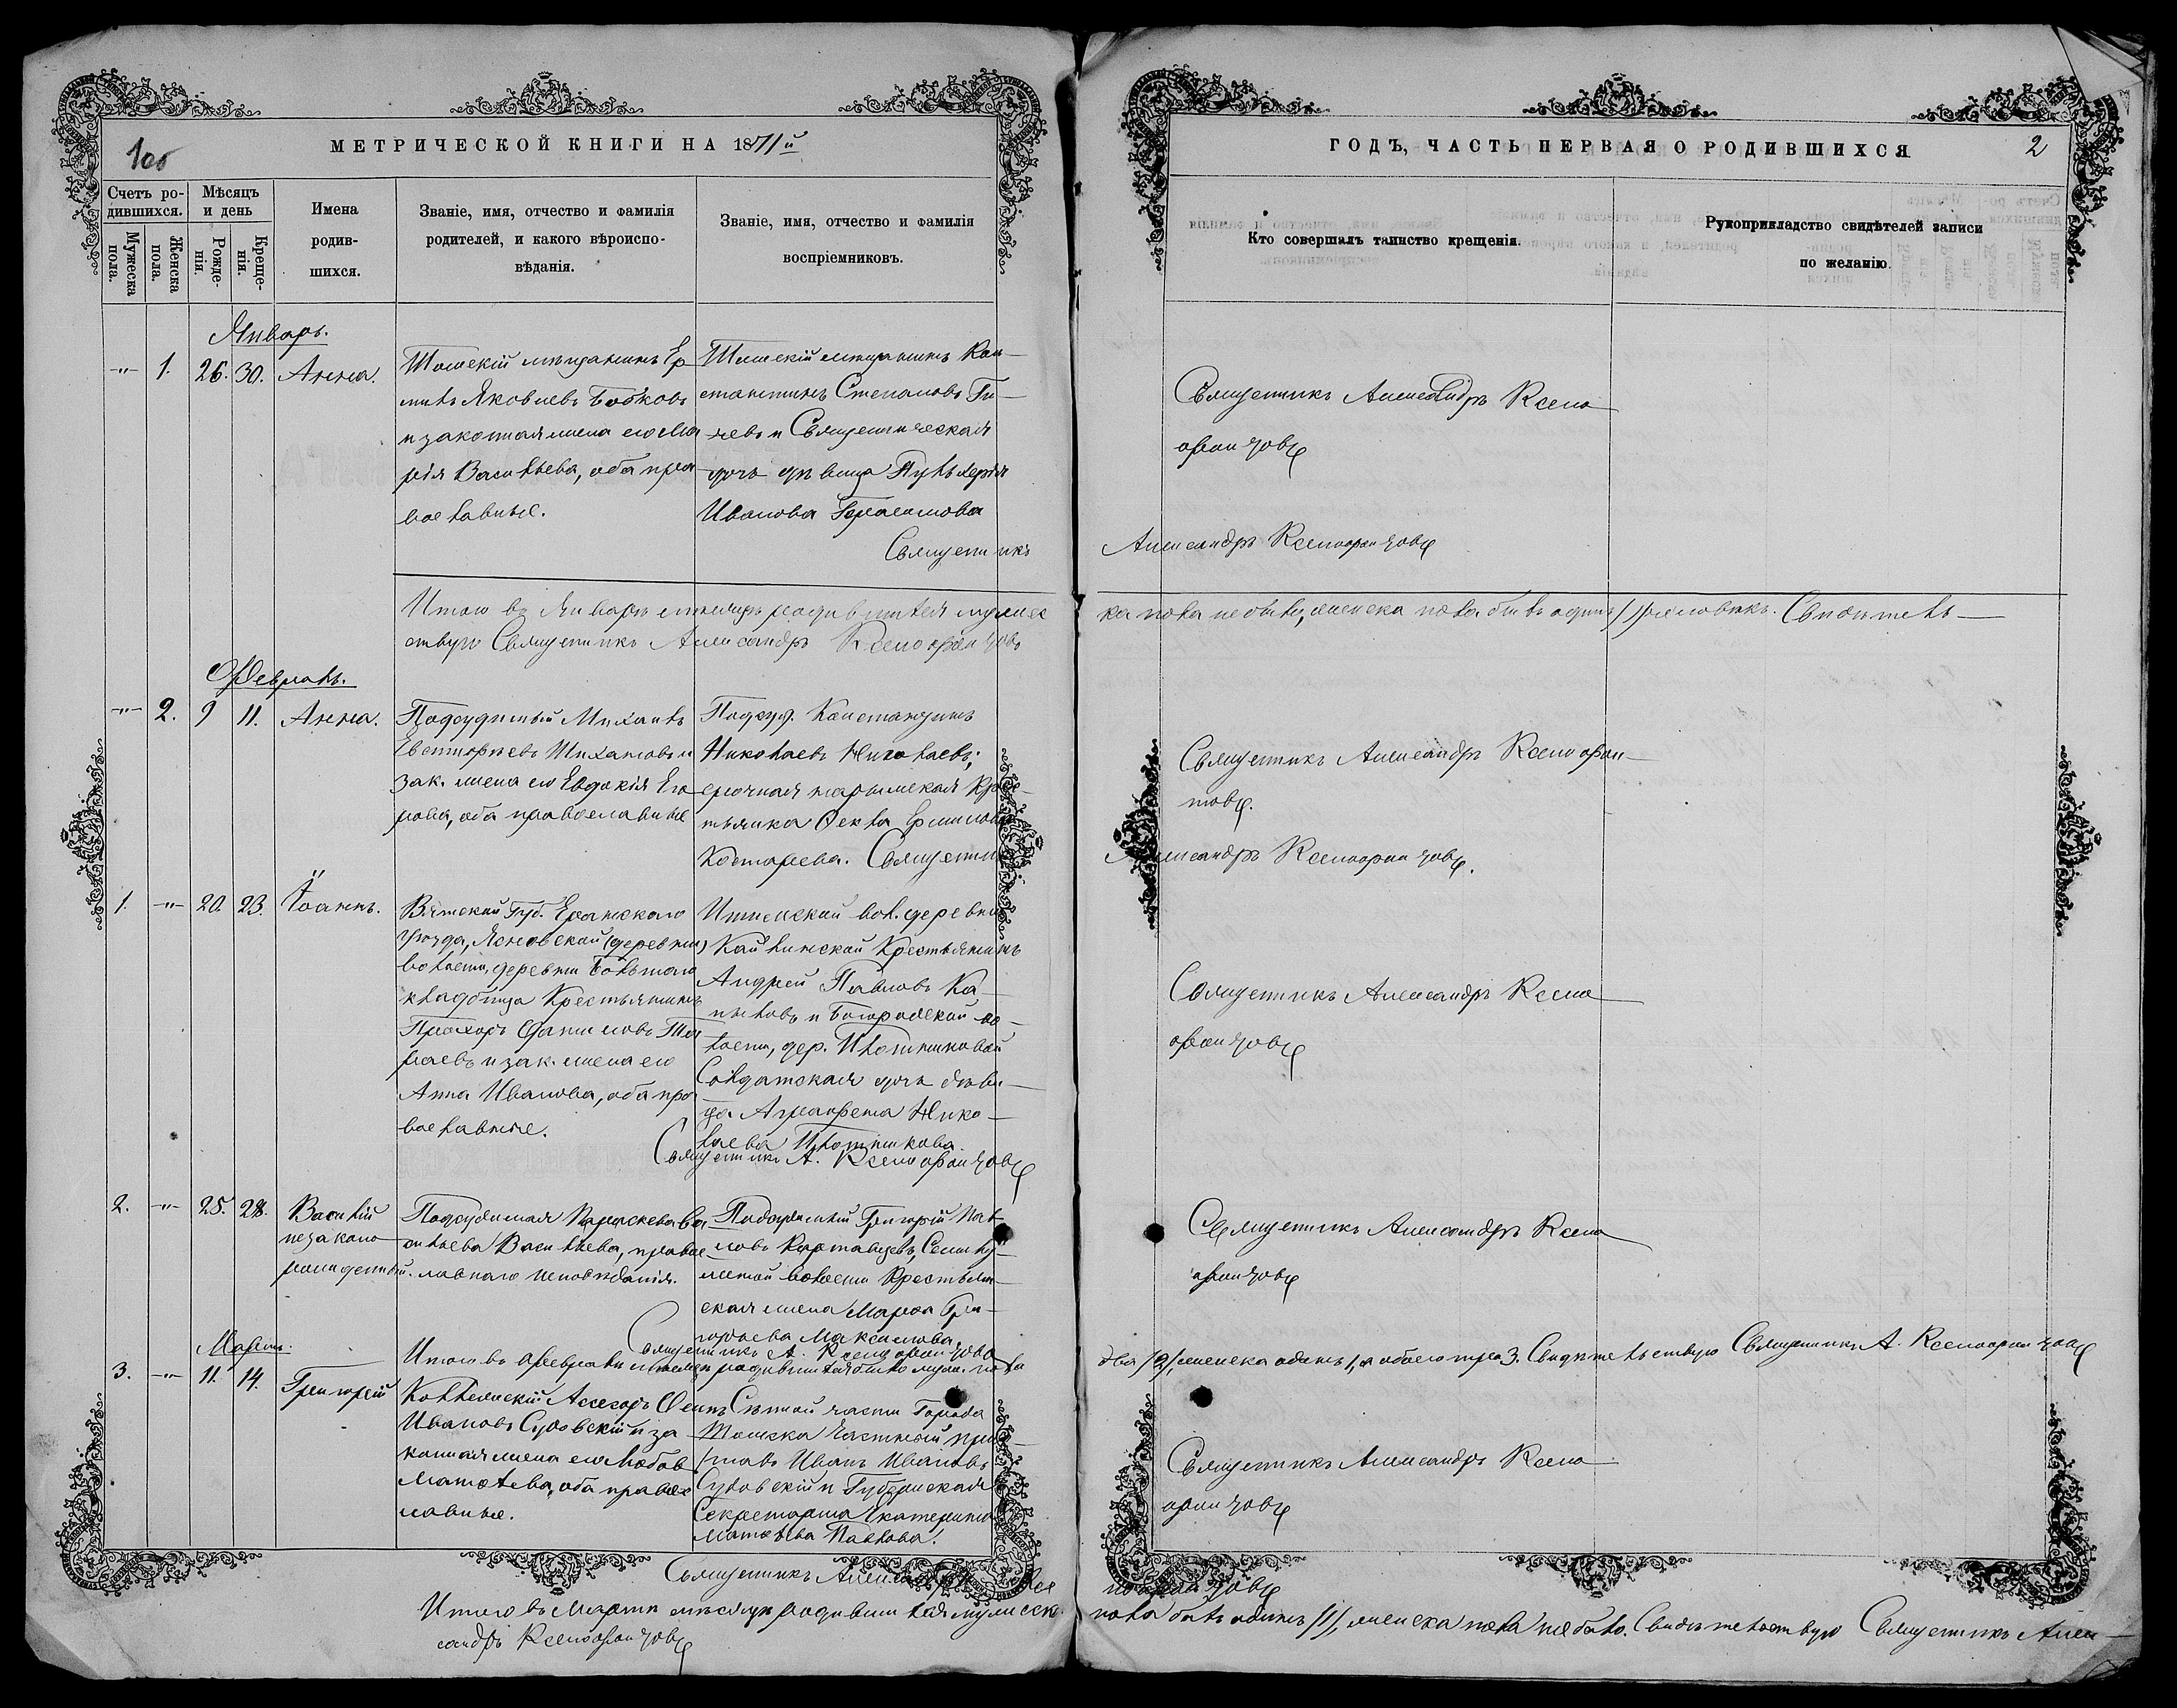 100
МЕТРИЧЕСКОЙ КНИГИ НА 1871й
Счетъ ро-
дившихся.
Мужеска
пола.
Женска
пола.
Мѣсяцъ
и день
Рожде-
нія.
Креще-
нія.
Имена
родив-
шихся.
Званіе, имя, отчество и фамилія
родителей, и какого вѣроиспо-
вѣданія.
Званіе, имя, отчество и фамилія
воспріемниковъ.
ГОДЪ, ЧАСТЬ ПЕРВАЯ О РОДИВШИХСЯ
2
Кто совершалъ таинство крещенія.
Рукоприкладство свидѣтелей записи
по желанію.
Январь.
-"- 1. 26. 30. Анна.
Томскій мѣщанинъ Ер
милъ Яковлевъ Бобковъ
и законная жена его Ма
рія Васильева, оба пра
вославные.
Томскій мѣщанинъ Кон-
стантинъ Степановъ
и Священническая
дочь дѣвица Пульхерія
Иванова Герасимова
Священникъ
Священникъ Александръ Ксено
фонтовъ
Александръ Ксенофонтовъ
Итого въ Январѣ мѣсяцѣ родившихся мужес
ка пола не было, женска пола былъ одинъ /1/ человѣкъ. Свидѣтель-
ствую Священникъ Александръ Ксенофонтовъ
Февраль.
-"- 2. 9 11. Анна.
Подсудимый Михаилъ
Евстифѣевъ и
зак. жена его Евдокія Его
рова, оба православные
Подсуд. Константинъ
Николаевъ Николаевъ;
срочная нарымская Крес-
тьянка Фекла Ермилова
Костарева. Священни
Священникъ Александръ Ксенофон-
товъ.
Александръ Ксенофонтовъ.
1. -"- 20. 23. Іоаннъ.
Вятской Губ. Еранскаго
уѣзда, (деревни)
волости, деревни Большаго
кладбища Крестьянинъ
Прохоръ
и зак. жена его
Анна Иванова, оба пра
вославные.
вол. деревни
Крестьянинъ
Андрей Павловъ Ка-
и Богородской во-
лости, дер. Плотниковой
Солдатская дочь дѣви-
ца Аграфена Нико-
лаева Плотникова
Священникъ А. Ксенофонтовъ
Священникъ Александръ Ксено
фонтовъ
2. -"- 25. 28. Василій
незаконо
рожденный.
Подсудимая Параскева Ва
сильева Васильева, правос
лавнаго исповѣданія.
Подсудимый Григорій Пав
ловъ
волости Крестьян-
ская жена Марѳа Гри-
горьева Максимова
Священникъ А. Ксенофонтовъ
Священникъ Александръ Ксено
фонтовъ
Итого въ Февралѣ мѣсяцѣ родившихся было муж. пола
два /2/, женска одинъ 1, а обоего три 3. Свидѣтельствую Священникъ А. Ксенофонтовъ
Мартъ.
3. -"- 11. 14. Григорій
Коллежскій Асессоръ
Ивановъ и за
конная жена его Любовь
Матвѣева, оба правос
лавные.
Сѣнной части Города
Томска Частный прис
тавъ Иванъ Ивановъ
и Губернская
Секретарша Екатерина
Матвѣева Павлова.
Священникъ Александръ Ксе
нофонтовъ
Священникъ Александръ Ксено
фонтовъ
Итого въ Мартѣ мѣсяцѣ родившихся мужеск.
пола былъ одинъ /1/, женска пола не было. Свидѣтельствую Священникъ Алек-
сандръ Ксенофонтовъ